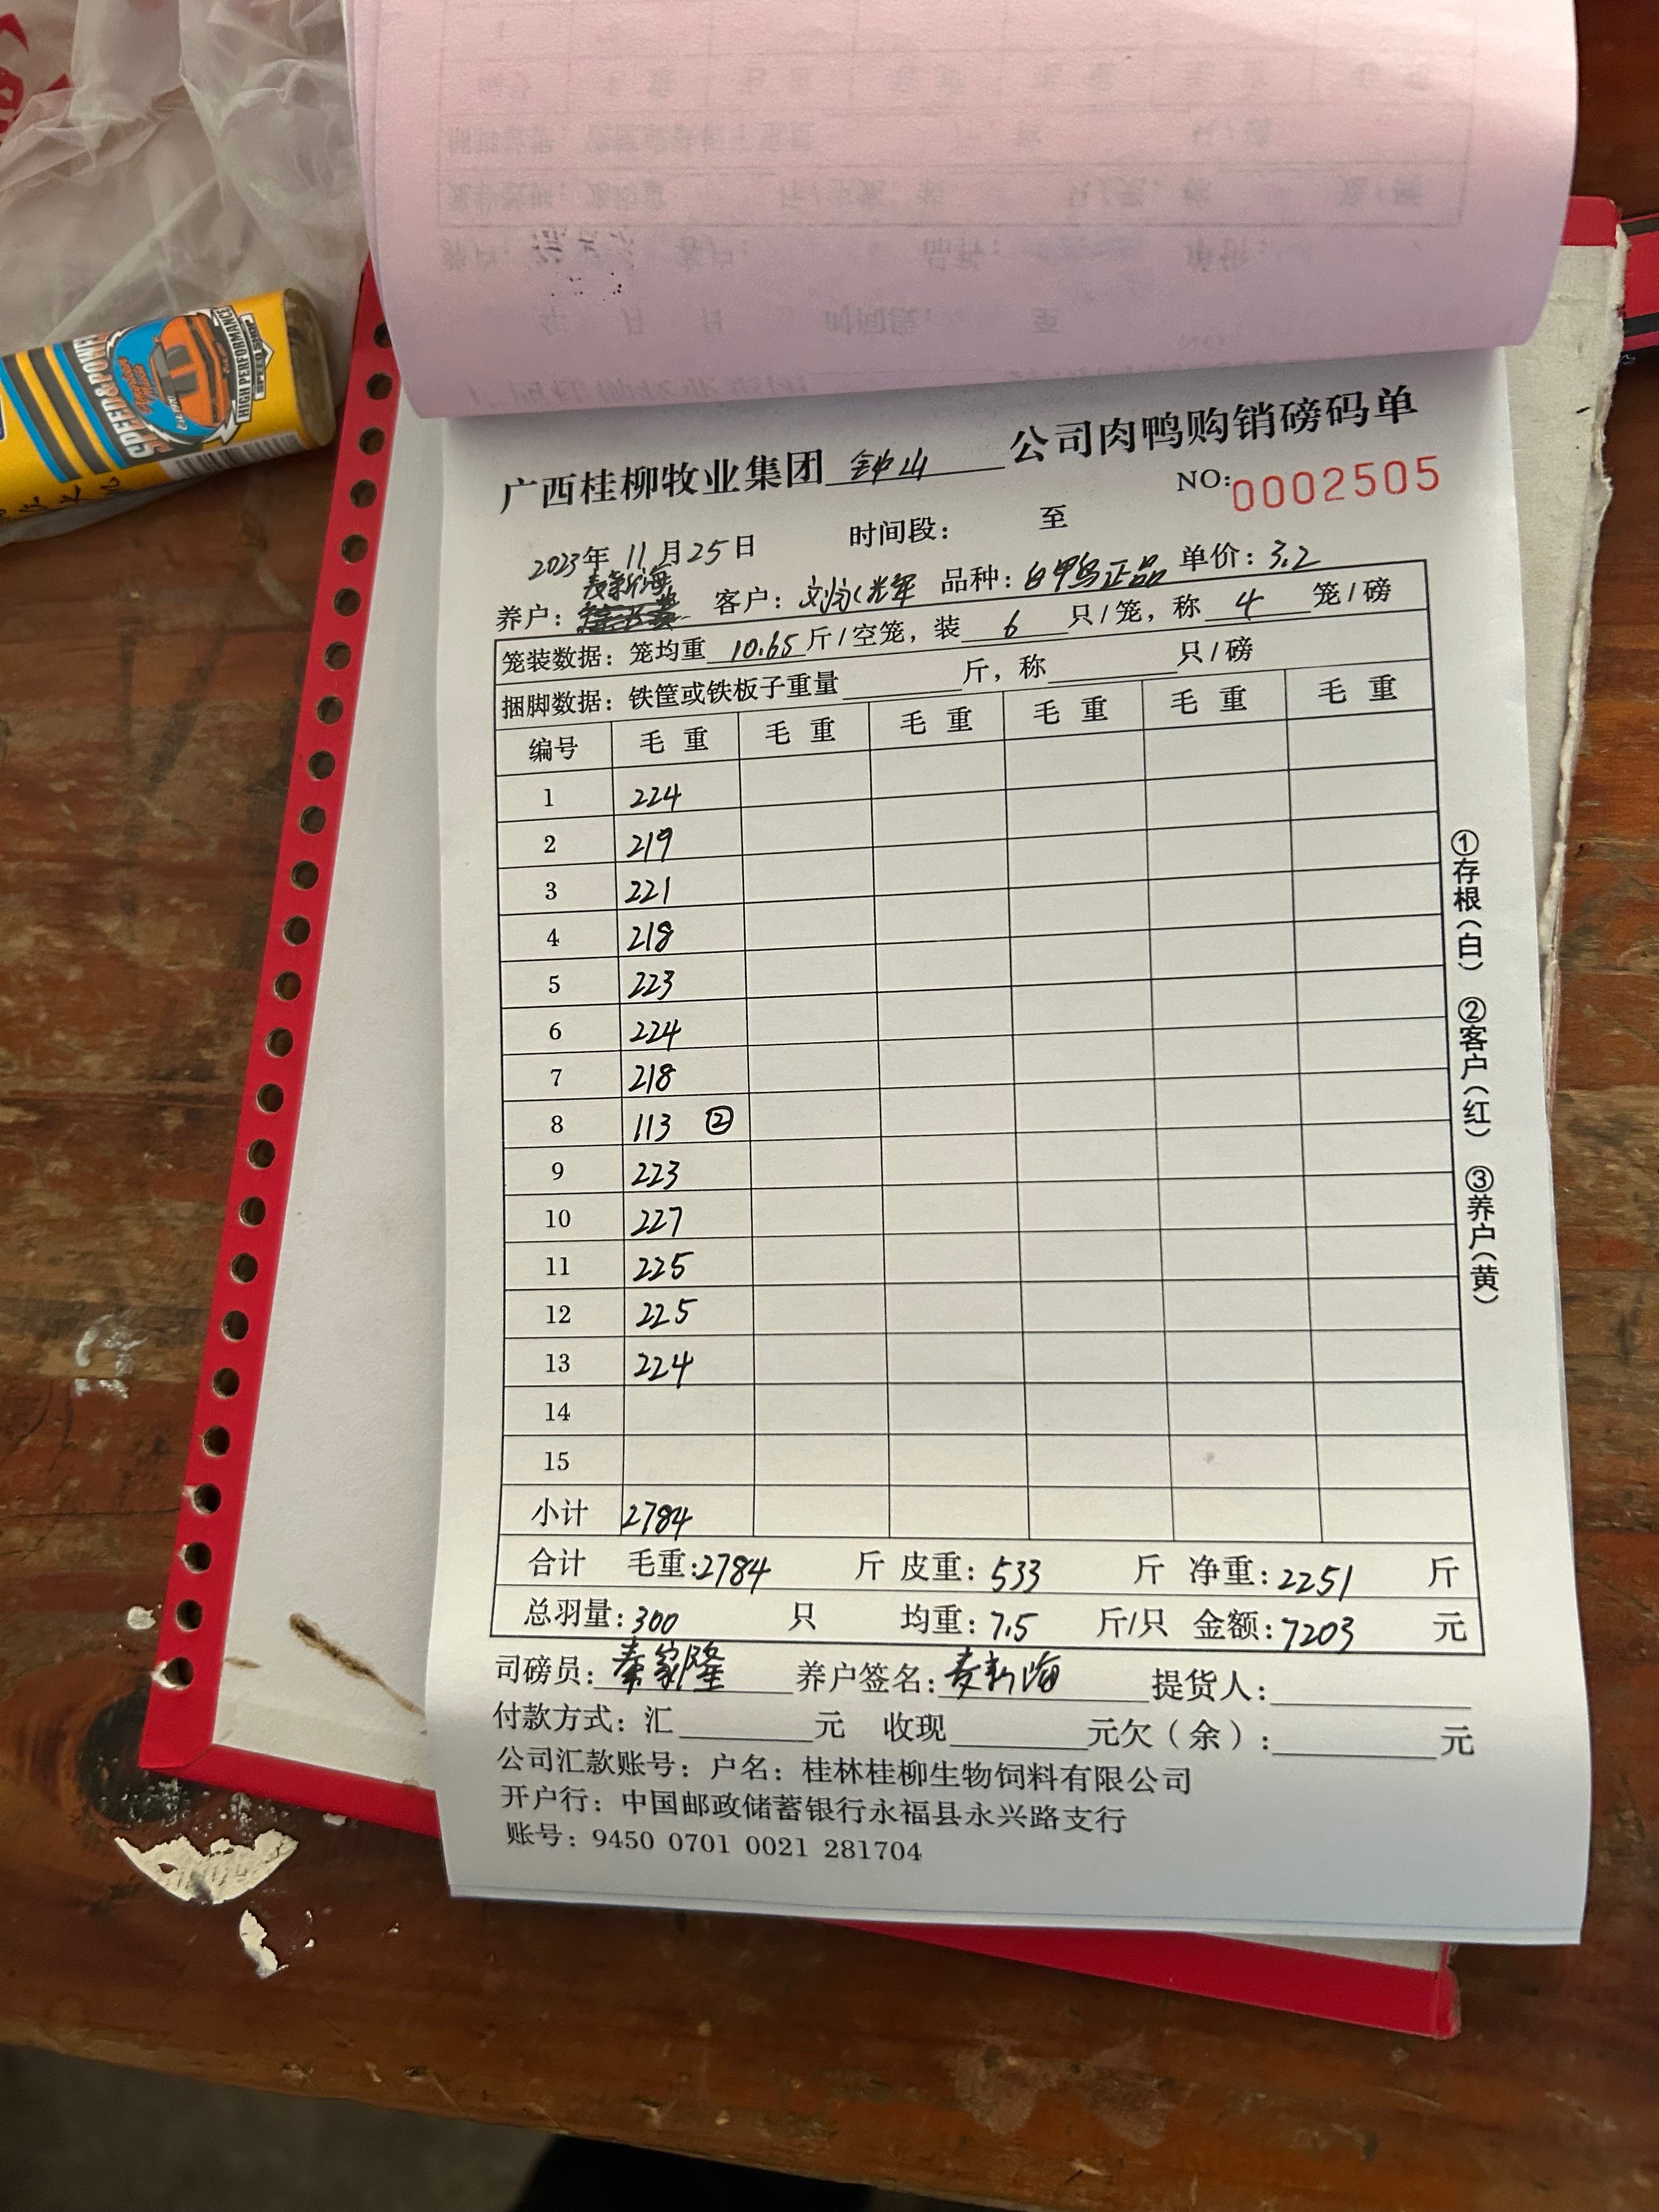 SPEED&POWER
HIGH PERFORMANCE
SPEED SHOP
广西桂柳牧业集团 钟山 公司肉鸭购销磅码单
NO:0002505
2023年 11月25日 时间段: 至
麦新海
养户: 客户: 品种: 白甲鸭正品 单价: 3.2
笼装数据: 笼均重 10.65 斤/空笼, 装 6 只/笼, 称 4 笼/磅
捆脚数据: 铁筐或铁板子重量 斤, 称 只/磅
编号 毛重 毛重 毛重 毛重 毛重 毛重
1 224
2 219
3 221
4 218
5 223
6 224
7 218
8 113 ②
9 223
10 227
11 225
12 225
13 224
14
15
小计 2784
合计 毛重:2784 斤 皮重: 533 斤 净重: 2251 斤
总羽量: 300 只 均重: 7.5 斤/只 金额: 7203 元
司磅员: 秦家隆 养户签名: 麦新海 提货人:
付款方式: 汇 元 收现 元欠(余): 元
公司汇款账号: 户名: 桂林桂柳生物饲料有限公司
开户行: 中国邮政储蓄银行永福县永兴路支行
账号: 9450 0701 0021 281704
①存根(白) ②客户(红) ③养户(黄)